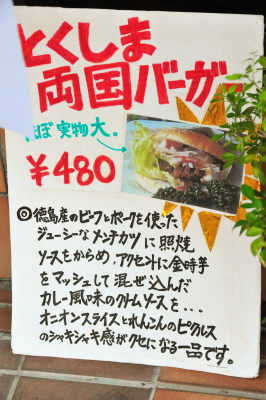 とくしま
両国バーガー
ほぼ実物大。
¥480
◎徳島産のビーフとポークを使った
ジューシーなメンチカツに照焼
ソースをからめ、アクセントに金時芋
をマッシュして混ぜ込んだ
カレー風味のクリームソースを...
オニオンスライスとれんこんのピクルス
のシャキシャキ感がクセになる一品です。